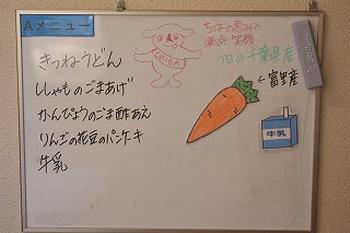 Aメニュー
きつねうどん
ししゃものごまあげ
かんぴょうのごま酢あえ
りんごの花豆のパンケーキ
牛乳
CHIBA
ちばの恵みで
満点笑顔
今日の千葉県産
←富里産
牛乳